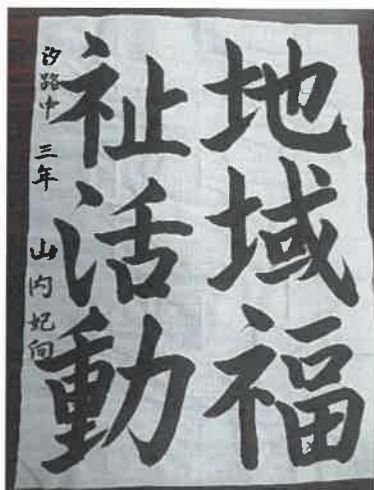 地域福
祉活動
汐路中 三年 山内妃向